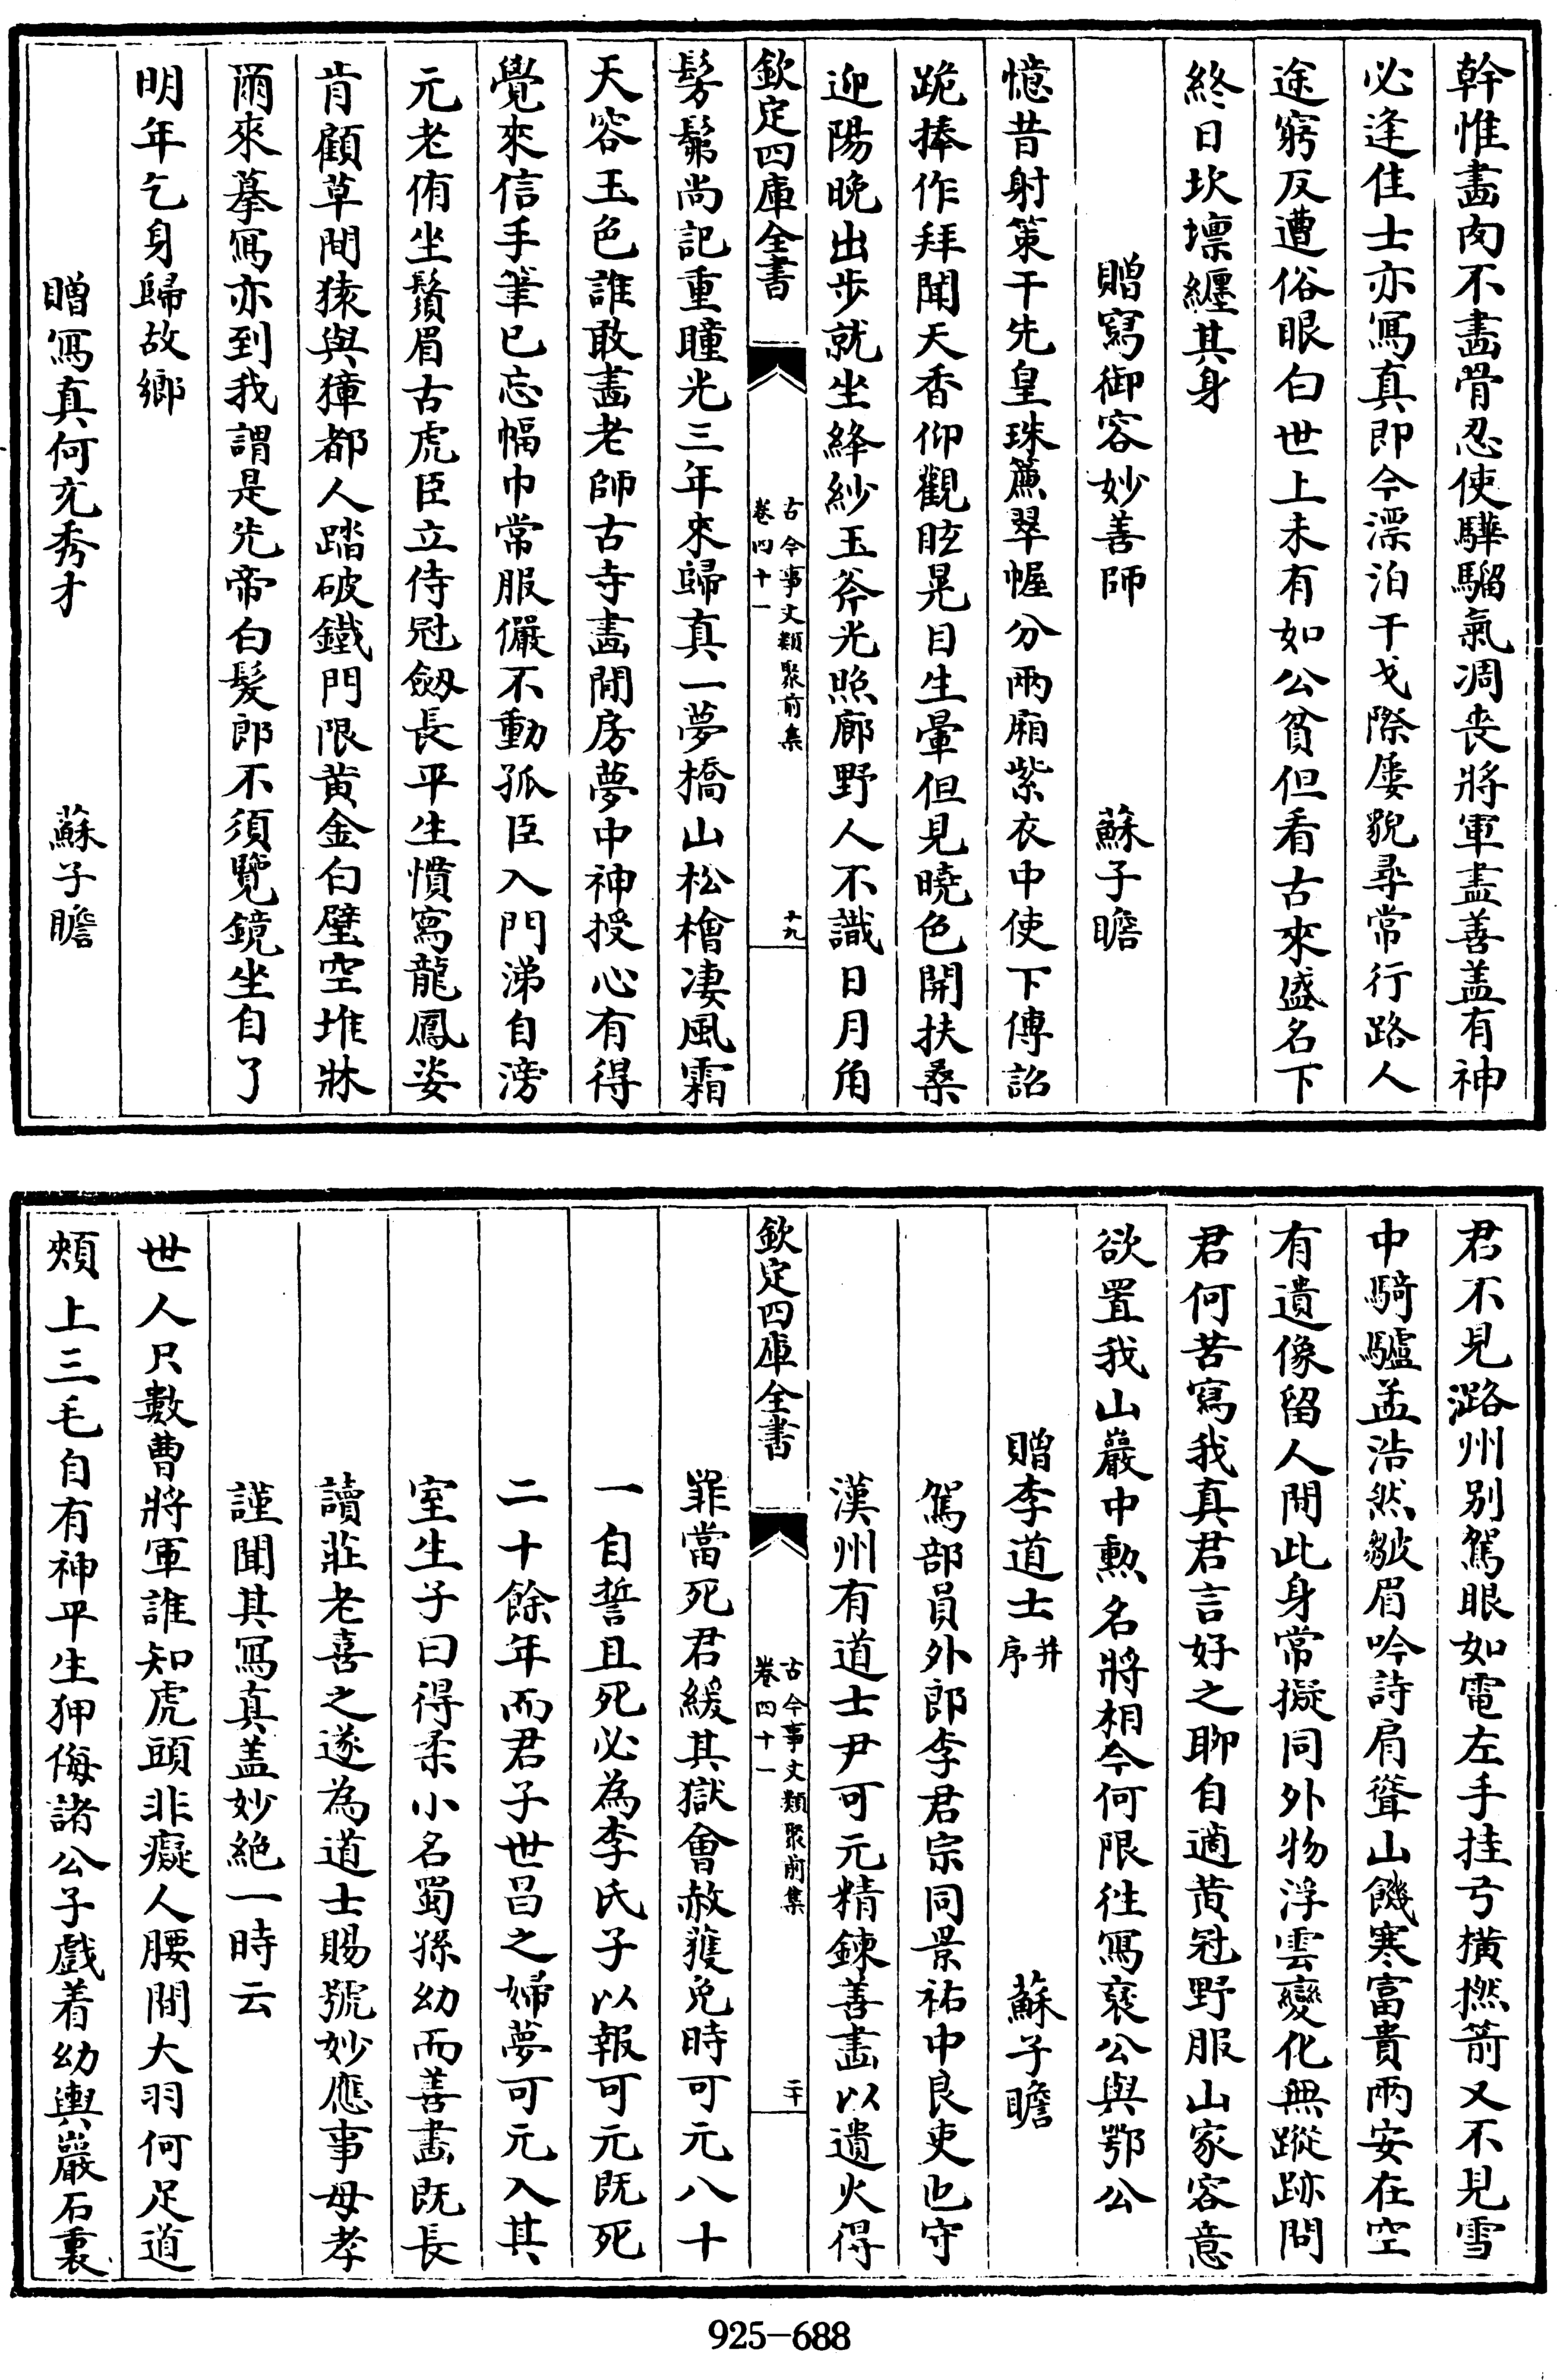 幹惟畵肉不畵骨忍使驊騮氣凋喪將軍盡善盖有神
必逢佳士亦冩真即今漂泊干戈際屡貌尋常行路人
途窮反遭俗眼白世上未有如公貧但看古來盛名下
終日坎壈纏其身
贈寫御容妙善師　蘇子瞻
憶昔射策干先皇珠簾翠幄分兩廂紫衣中使下傳詔
跪捧作拜聞天香仰觀眩晃目生暈但見曉色開扶桑
迎陽晚出步就坐絳紗玉斧光照廊野人不識日月角
欽定四庫全書　古今事文類聚前集　卷四十一　十九
髣髴尚記重瞳光三年來歸真一夢橋山松檜凄風霜
天容玉色誰敢畵老師古寺畵閉房夢中神授心有得
覺來信手筆已忘幅巾常服儼不動孤臣入門涕自滂
元老侑坐鬚眉古虎臣立侍冠劒長平生慣寫龍鳳姿
肯顧草間猿與獐都人踏破鐵門限黄金白璧空堆牀
爾來摹冩亦到我謂是先帝白髮郎不須覽鏡坐自了
明年乞身歸故鄉
贈冩真何充秀才　蘇子瞻
君不見潞州别駕眼如電左手挂弓橫撚箭又不見雪
中騎驢孟浩然皺眉吟詩肩聳山饑寒富貴兩安在空
有遺像留人間此身常擬同外物浮雲變化無蹤跡問
君何苦寫我真君言好之聊自適黄冠野服山家容意
欲置我山巖中勲名將相今何限徃冩褒公與鄂公
贈李道士并序　蘇子瞻
駕部員外郎李君宗同景祐中良吏也守
漢州有道士尹可元精鍊善畵以遺火得
欽定四庫全書　古今事文類聚前集　卷四十一　二十
罪當死君緩其獄會赦獲免時可元八十
一自誓且死必為李氏子以報可元既死
二十餘年而君子世昌之婦夢可元入其
室生子曰得柔小名蜀孫幼而善畵既長
讀莊老喜之遂為道士賜號妙應事母孝
謹聞其冩真盖妙絶一時云
世人只數曹將軍誰知虎頭非癡人腰間大羽何足道
頰上三毛自有神平生狎侮諸公子戲着幼輿巖石裏
925-688